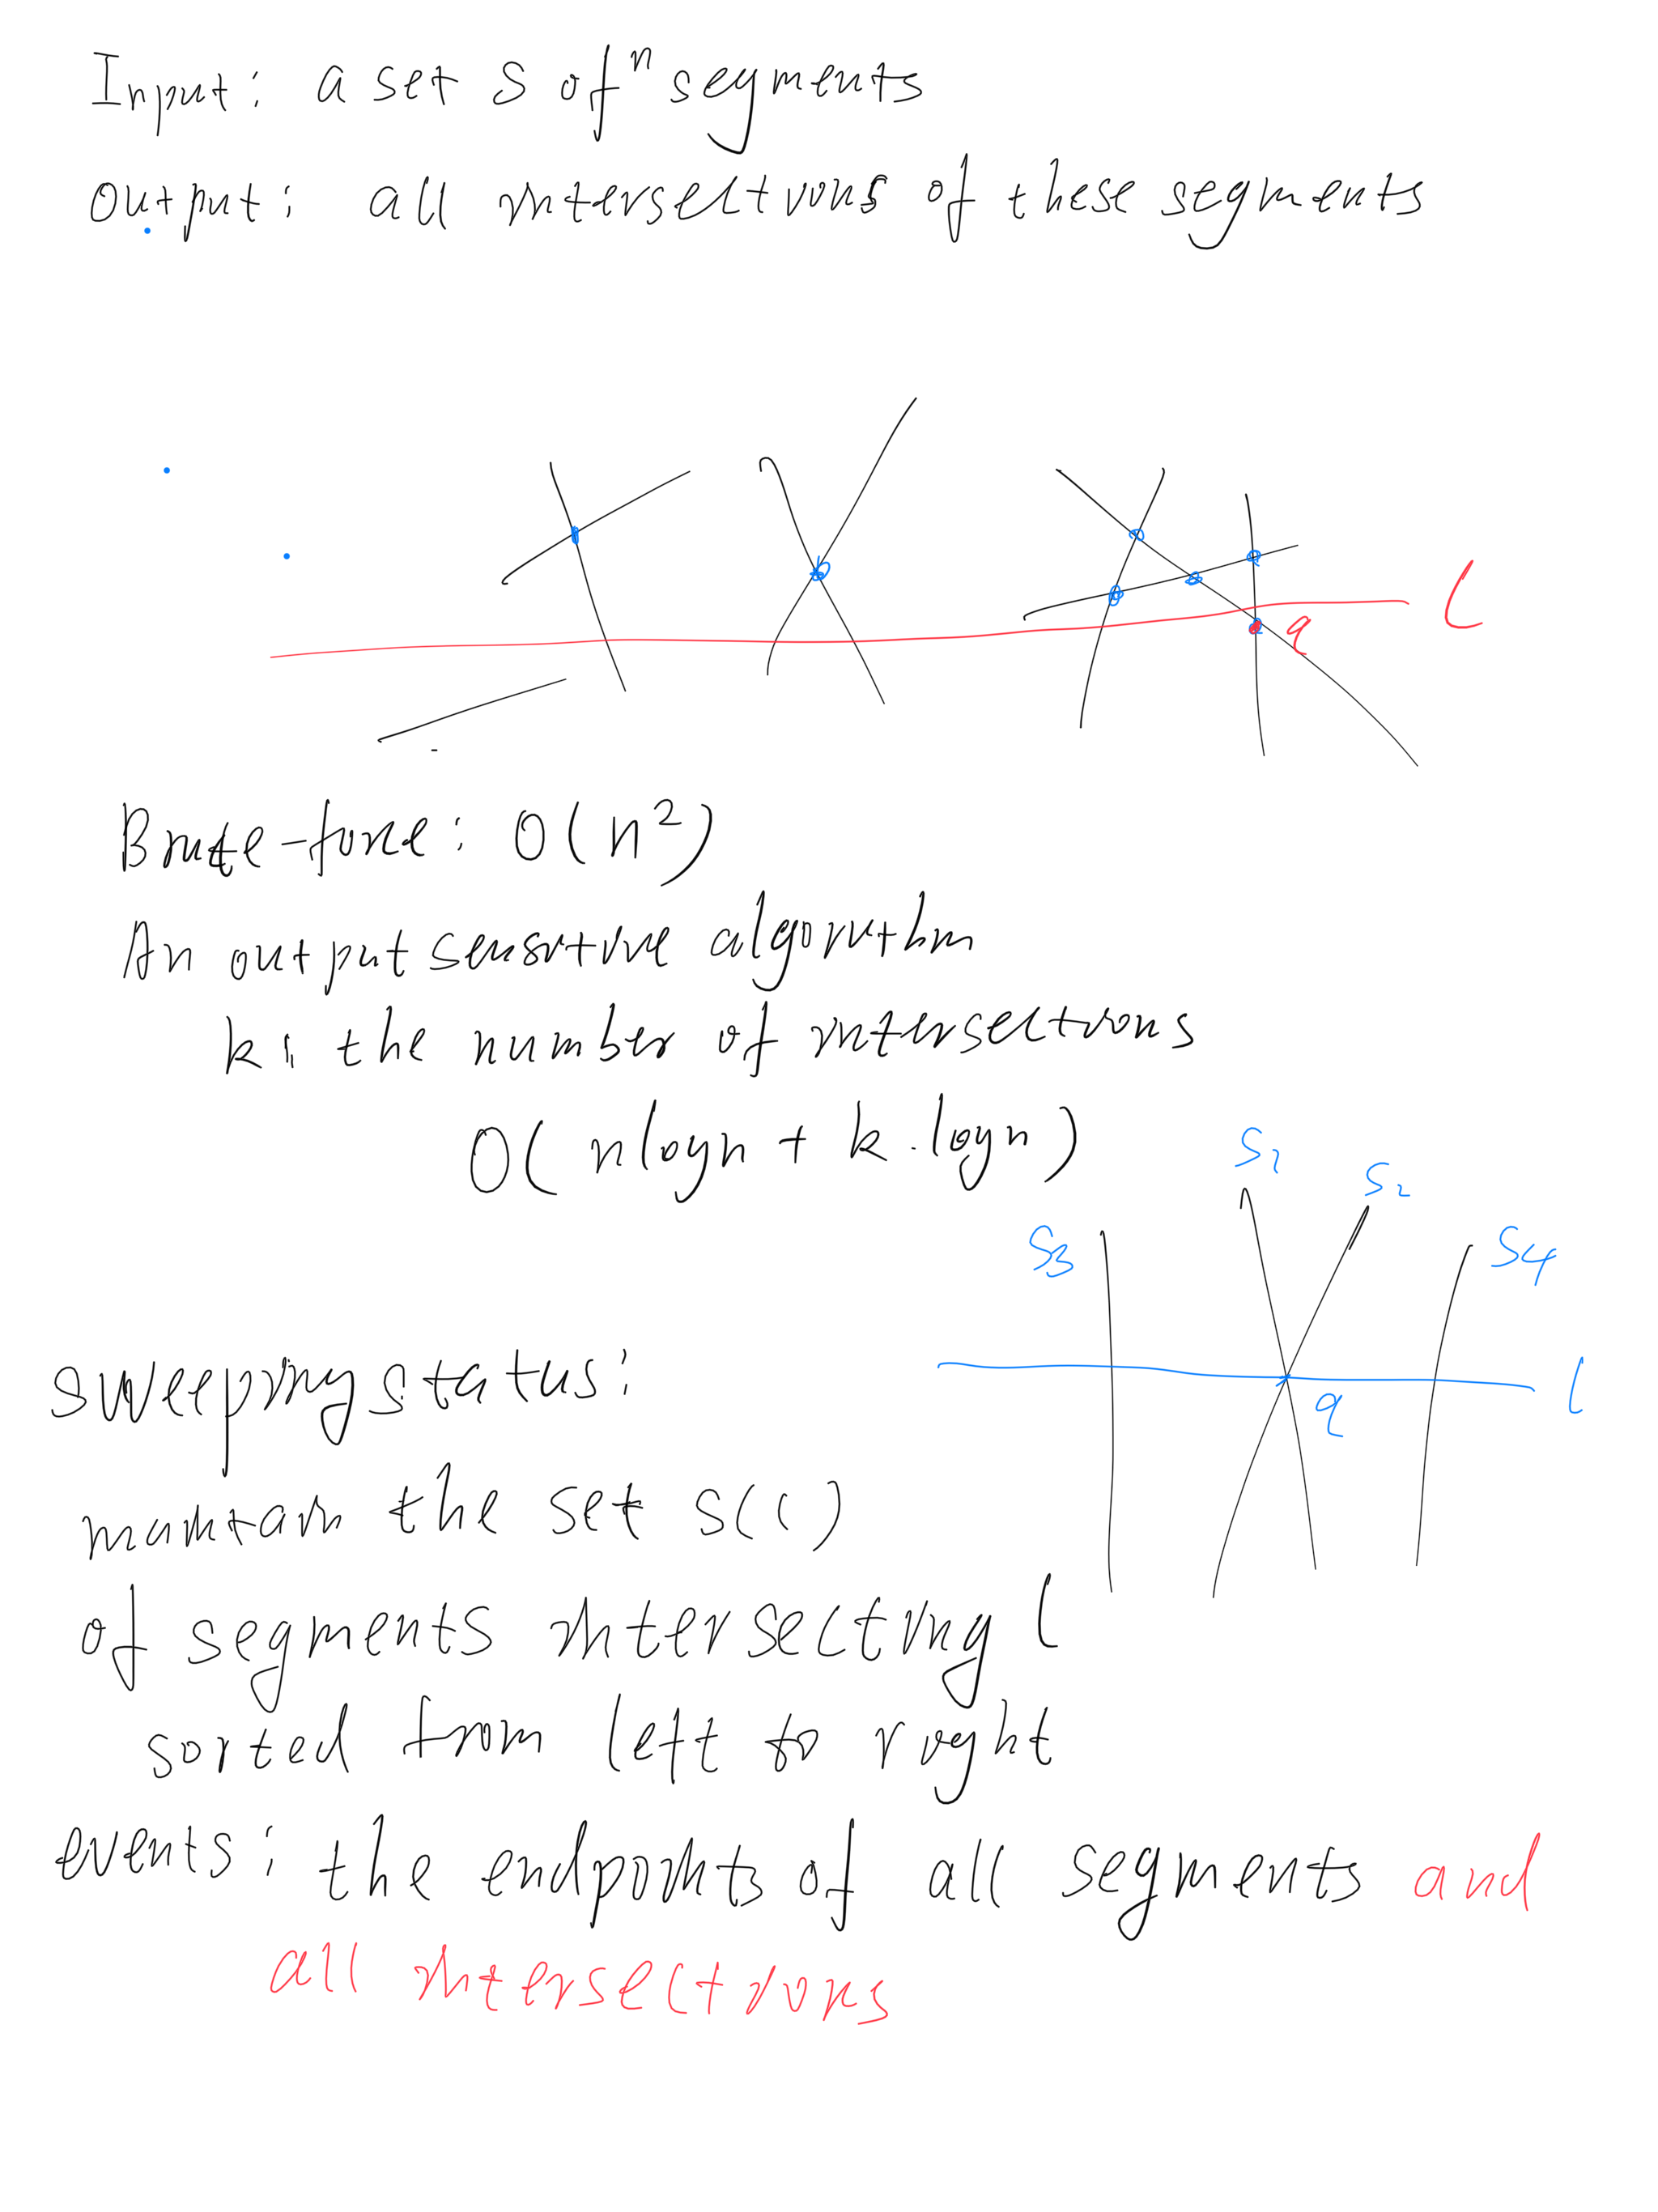 Input: a set S of n segments
Output: all intersections of these segments
l
q
Brute-force: O(n²)
An output sensitive algorithm
k: the number of intersections
O(nlogn + k·logn)
S1
S2
S3
S4
l
q
sweeping status:
maintain the set S(l)
of segments intersecting l
sorted from left to right
events: the endpoints of all segments and
all intersections